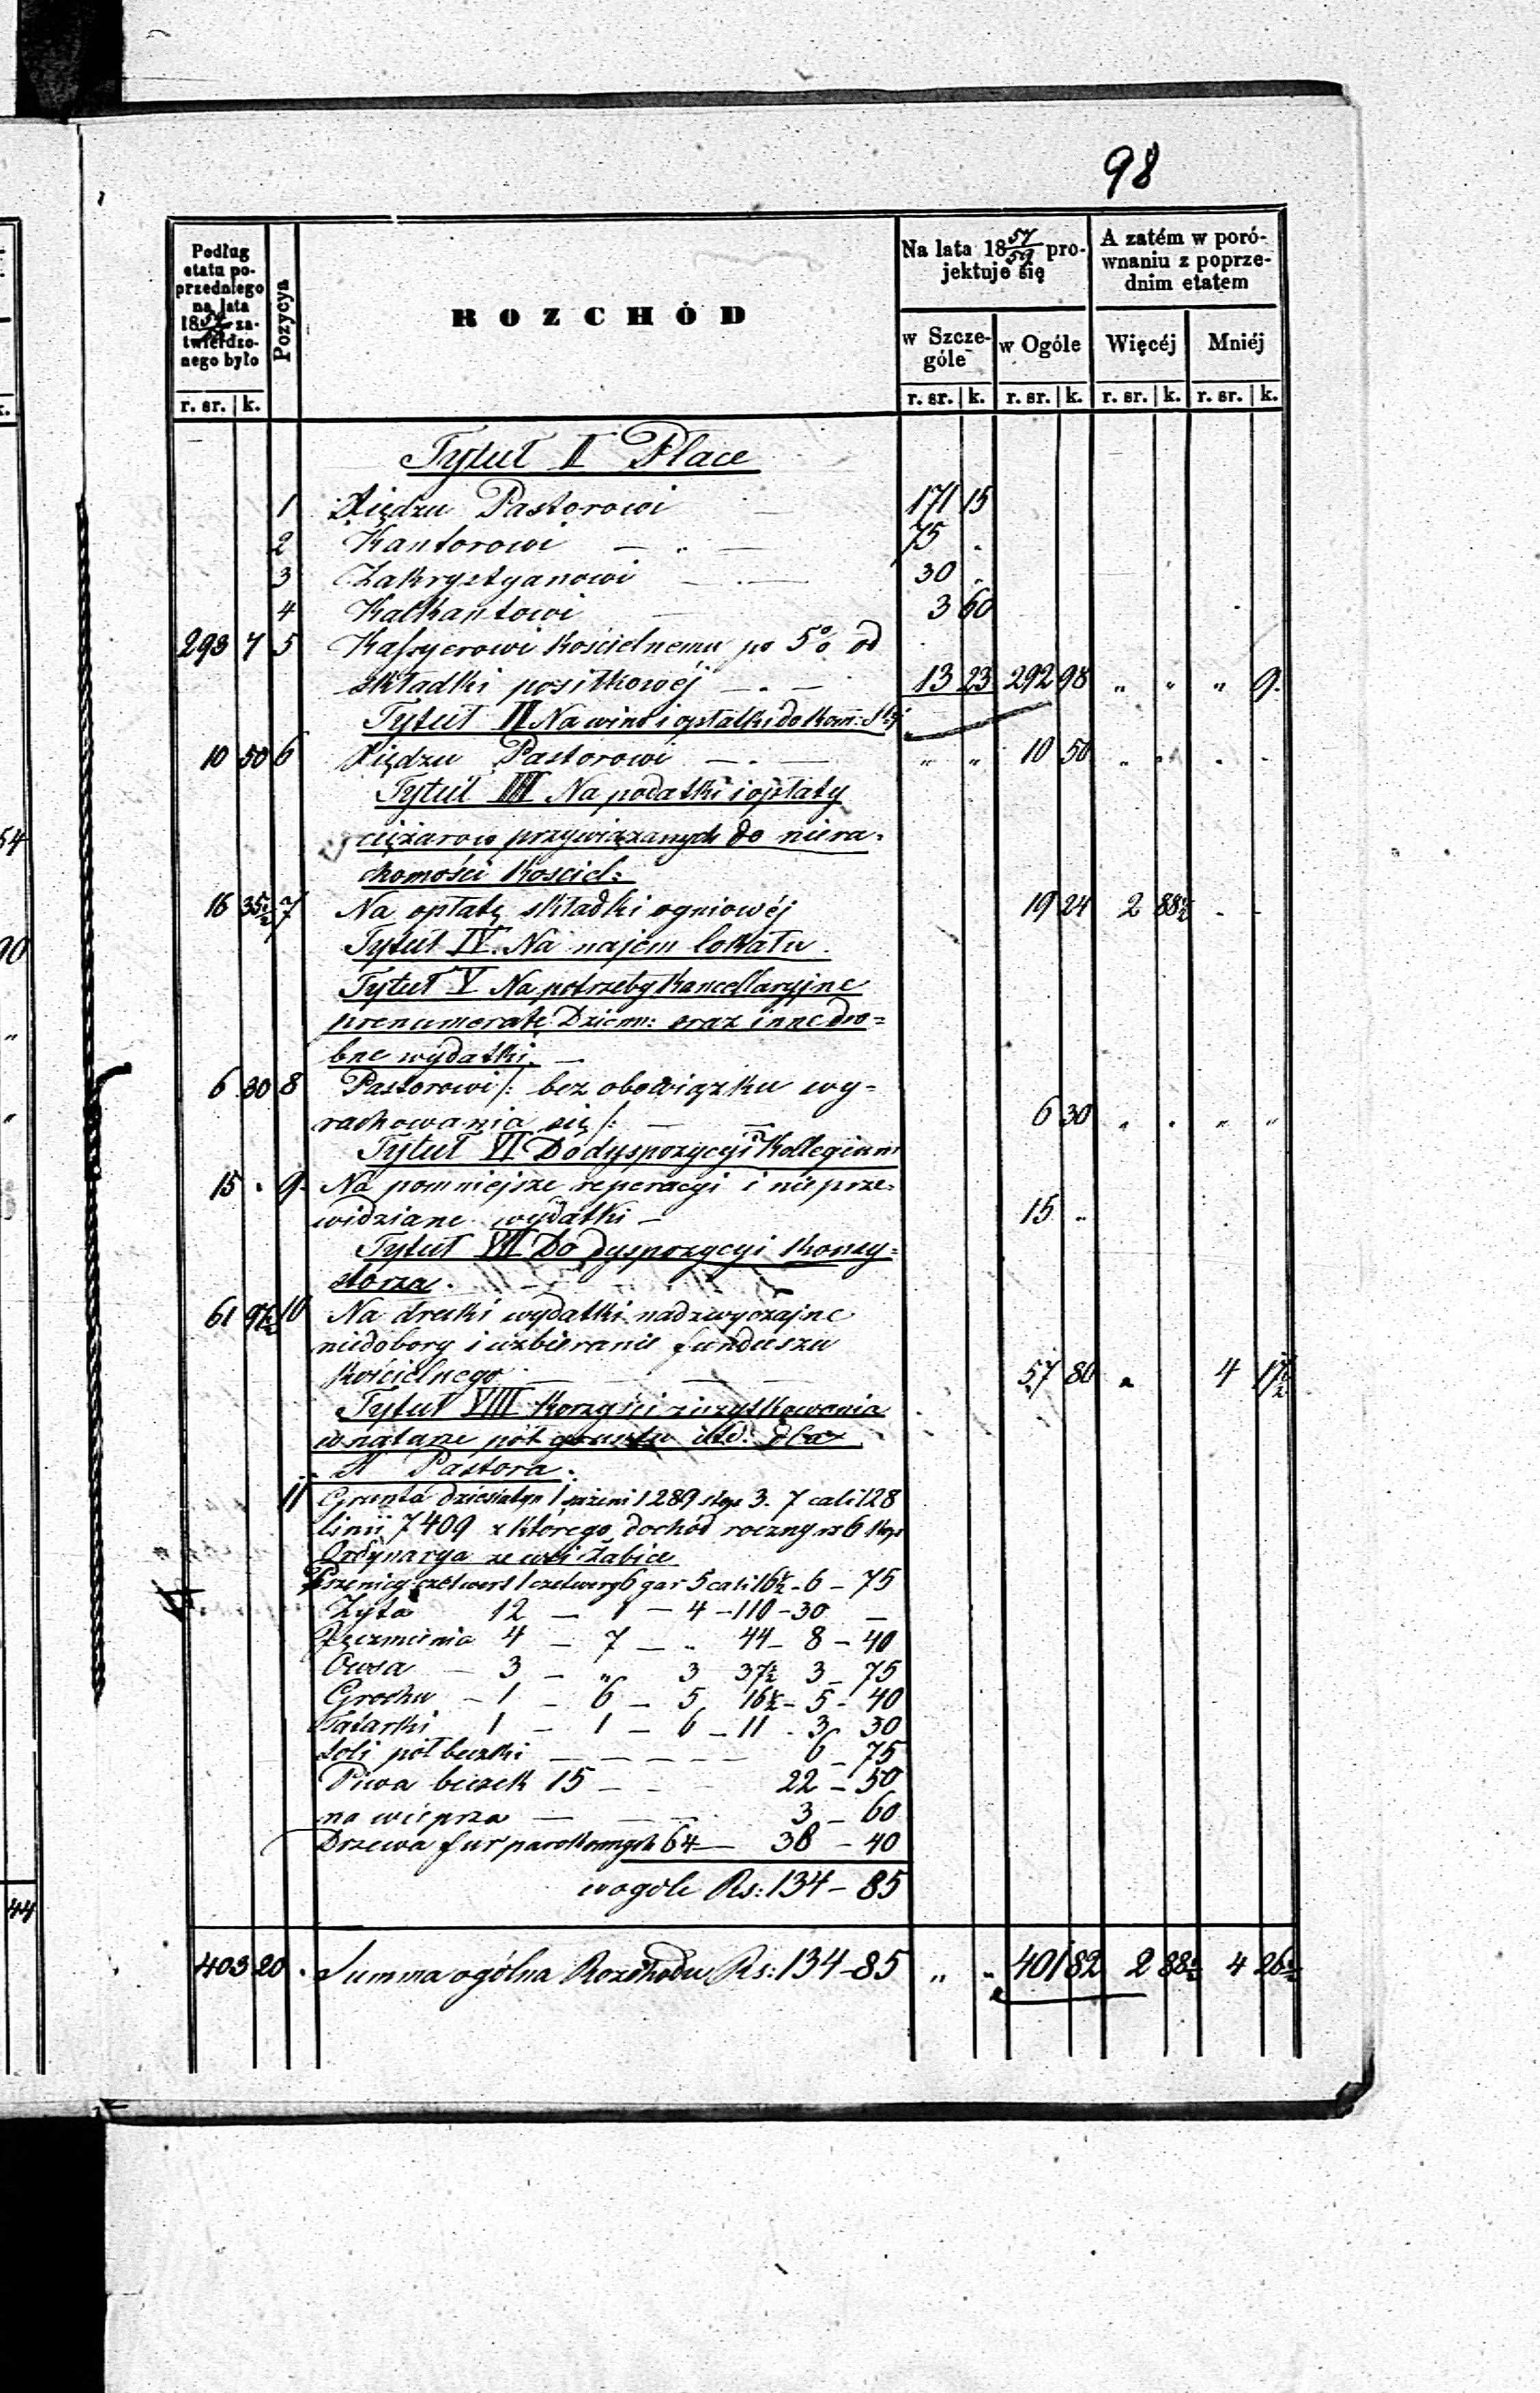 98
Podług etatu poprzedniego na lata 18 zatwierdzonego było
Pozycya
ROZCHÓD
Na lata 18 57/59 projektuje się
A zatém w porównaniu z poprzednim etatem
w Szczególe
w Ogóle
Więcéj
Mniéj
r. sr. k. r. sr. k. r. sr. k. r. sr. k. r. sr. k.
Tytuł I Płace
1 Xiędzu Pastorowi 171 15
2 Kantorowi — „ — 75 „
3 Zakrystyanowi — 30 „
4 Kalkantowi 3 60
293 7 5 Kassyerowi kościelnemu po 5% od
składki posiłkowéj — 13 23 292 98 „ „ „ 9
Tytuł II Na wino i opłatki do Kom:
10 50 6 Xiędzu Pastorowi — „ „ 10 50 „ „ „ „
Tytuł III Na podatki i opłaty
ciężarow przywiązanych do niera-
chomości kościel:
16 35½ 7 Na opłatę składki ogniowéj 19 24 2 88½ - -
Tytuł IV. Na najem lokalu
Tytuł V Na potrzeby Kancellaryjne
prenumeratę Dzienn: oraz inne dro=
bne wydatki. —
6 30 8 Pastorowi /: bez obowiązku wy=
rachowania się /: — 6 30 „ „ „ „
Tytuł VI Do dyspozycyi Kollegium
15 „ 9 Na pomniejsze reperacyi i nieprze-
widziane wydatki — 15 „
Tytuł VII Do dyspozycyi Konsy=
storza.
61 97½ 10 Na druki wydatki nadzwyczajne
niedobory i uzbieranie funduszu
kościelnego — 57 80 „ 4 17½
Tytuł VIII Korzyści z użytkowania
w naturze pół gruntu itd: dla
A Pastora.
11 Grunta dziesiatyn 1 sążeni 1289 stop 3. 7 cali 128
linii 7409 z którego dochód roczny rs 6 kop
Ordynarya ze wsi Żabice
Pszenicy czetwert 1 czetweryg 6 gar 5 cali 16½ - 6 - 75
Żyta 12 — 1 — 4 - 110 - 30 —
Jęczmienia 4 — 7 — „ 44 - 8 - 40
Owsa — 3 — „ 3 37½ 3 - 75
Grochu — 1 — 6 — 5 16½ - 5 - 40
Tatarki 1 — 1 — 6 — 11 - 3 30
Soli pół beczki — — — — — 6 - 75
Piwa beczek 15 — — 22 - 50
na wieprza — — 3 - 60
Drzewa fur parokonnych 64 — 38 - 40
wogóle Rs: 134 - 85
403 20 Summa ogólna Rozchodu Rs: 134 - 85 „ „ 401 82 2 88½ 4 26½